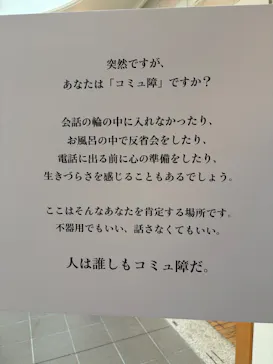 突然ですが、
あなたは「コミュ障」ですか？
会話の輪の中に入れなかったり、
お風呂の中で反省会をしたり、
電話に出る前に心の準備をしたり、
生きづらさを感じることもあるでしょう。
ここはそんなあなたを肯定する場所です。
不器用でもいい、話さなくてもいい。
人は誰しもコミュ障だ。